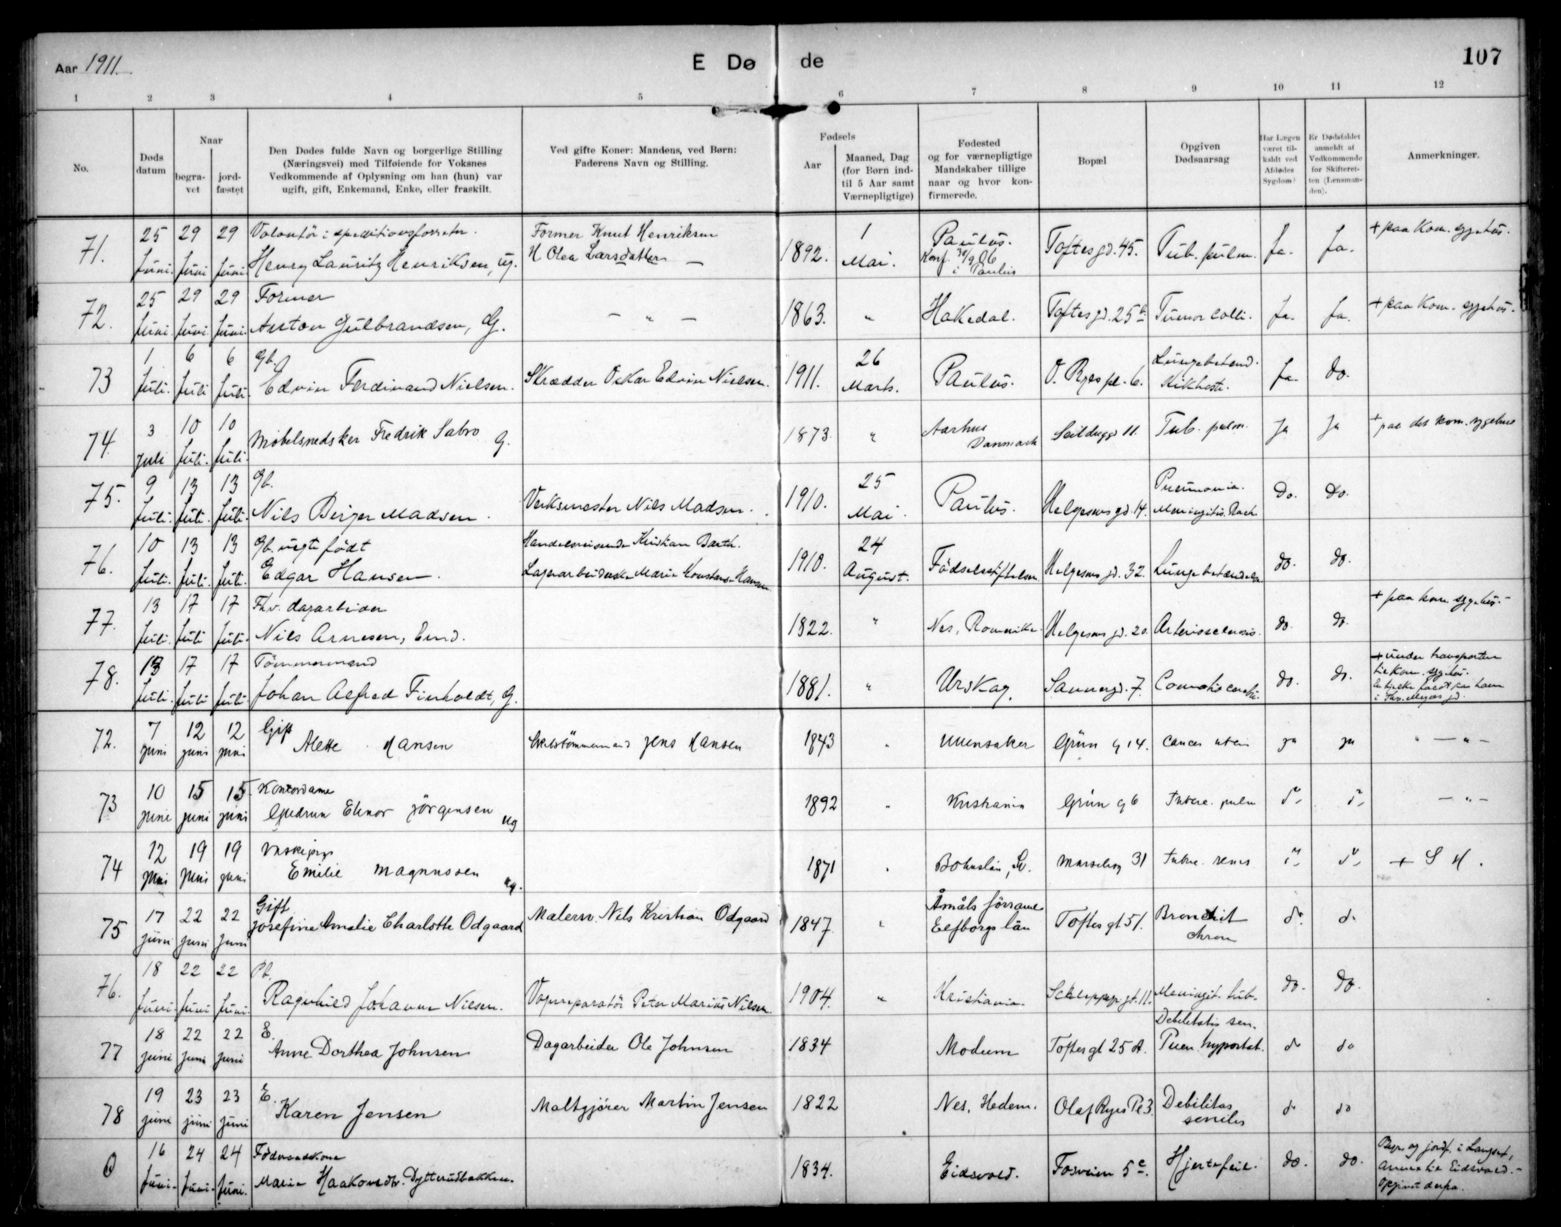 Aar 1911.
E Døde
107
1 2 3 4 5 6 7 8 9 10 11 12
No.
Døds datum
Naar
begra-vet
jord-fæstet
Den Dødes fulde Navn og borgerlige Stilling
(Næringsvei) med Tilføiende for Voksnes
Vedkommende af Oplysning om han (hun) var
ugift, gift, Enkemand, Enke, eller fraskilt.
Ved gifte Koner: Mandens, ved Børn:
Faderens Navn og Stilling.
Fødsels
Aar
Maaned, Dag
(for Børn ind-
til 5 Aar samt
Værnepligtige)
Fødested
og for værnepligtige
Mandskaber tillige
naar og hvor kon-
firmerede.
Bopæl
Opgiven
Dødsaarsag
Har Lægen
været til-
kaldt ved
Afdødes
Sygdom?
Er Dødsfaldet
anmeldt af
Vedkommende
for Skifteret-
ten (Lensman-
den).
Anmerkninger.
71. 25 Juni 29 Juni 29 Juni
Henry Lauritz Henriksen, ug.
Former Knut Henriksen
H Olea Larsdatter
1892. 1 Mai. Paulus. Konf. 30/9 06 i Paulus
Toftesgd. 45. Tub. pulm. Ja. Ja. + paa Kom. sygehus.
72. 25 Juni. 29 Juni 29 Juni. Former
Anton Gulbrandsen, G. — " —
1863. " Hakedal. Toftesgd. 25 b Tumor colli. Ja. Ja. + paa Kom. sygehus.
73 1 Juli. 6 Juli. 6 Juli. Gb.
Edvin Ferdinand Nielsen. Skrædder Oskar Edvin Nielsen.
1911. 26 Marts. Paulus. O. Ryes pl. 6. Lungebetænd. Kikhoste. Ja. do.
74. 3 Juli 10 Juli. 10 Juli. Møbelsnedker Fredrik Sabro G.
1873. " Aarhus Danmark Seildugsg 11. Tub. pulm. Ja Ja + paa det kom. sygehus
75. 9 Juli. 13 Juli. 13 Juli. Gb.
Nils Birger Madsen. Verksmester Nils Madsen.
1910. 25 Mai. Paulus. Helgesens gd. 14. Pneumonia. Meningitis. do. do.
76. 10 Juli. 13 Juli. 13 Juli. Gb. uegte født
Edgar Hansen. Handelsreisende Kristian Barth.
Lagerarbeiderske Marie Konstanse Hansen
1910. 24 August. Fødselsstiftelsen Helgesens gd. 32. Lungebetændelse do. do.
77. 13 Juli 17 Juli. 17 Juli. Fhv. dagarbeider
Nils Arnesen, Emd.
1822. " Nes, Romerike. Helgesens gd. 20. Arteriosclerosis. do. do. + paa kom. sygehus.
78. 13 Juli. 17 Juli 17 Juli Tømmermand
Johan Alfred Finholdt, G.
1881. " Urskog. Sannergd. 7. do. do. + under transporten til Kom. sygehus.
72. 7 juni 12 juni 12 juni Gift
Alette Hansen Skibstømmermand Jens Hansen
1843 " Ullensaker Grün g 14. Cancer uteri ja ja " — " —
73 10 juni 15 juni 15 juni Kontordame
Gudrun Elenor Jørgensen ug
1892 " Kristiania Grün g 6 Tuberc. pulm do do — " —
74 12 juni 19 juni 19 juni
Emilie Magnussen ug.
1871 " Bohuslän, Sv. Markveg 31 Tuberc. renes do do + S H.
75 17 juni 22 juni 22 juni Gift
Josefine Amalie Charlotte Odgaard Malersv. Nils Kristian Odgaard
1847 " Åmåls församl Elfborgs län Toftes gt 51. Bronchit chron do do
76. 18 Juni. 22 Juni 22 Juni. Pb.
Ragnhild Johanne Nilsen. Vognreparatør Peter Marius Nilsen.
1904. " Kristiania. Schleppegr. gt. 11. Meningit. tub. do. do.
77 18 juni 22 juni 22 juni E.
Anne Dorthea Johnsen Dagarbeider Ole Johnsen
1834 Modum Toftes gt 25 A. Debilitas sen. Pneu. hypostat. do do
78 19 juni 23 juni 23 juni E.
Karen Jensen Maltgjører Martin Jensen
1822 Nes, Hedem. Olaf Ryes Pl 3 Debilitas senilis do do
0 16 Juni. 24 Juni. 24 Juni. Føderaadskone
Marie Haakonsdtr. Dytterudbakken.
1834. Eidsvold. Fosveien 5 c Hjertefeil. do. do. Begr. og jordf. i Langset, Anneks til Eidsvold. Opgivet derfra.